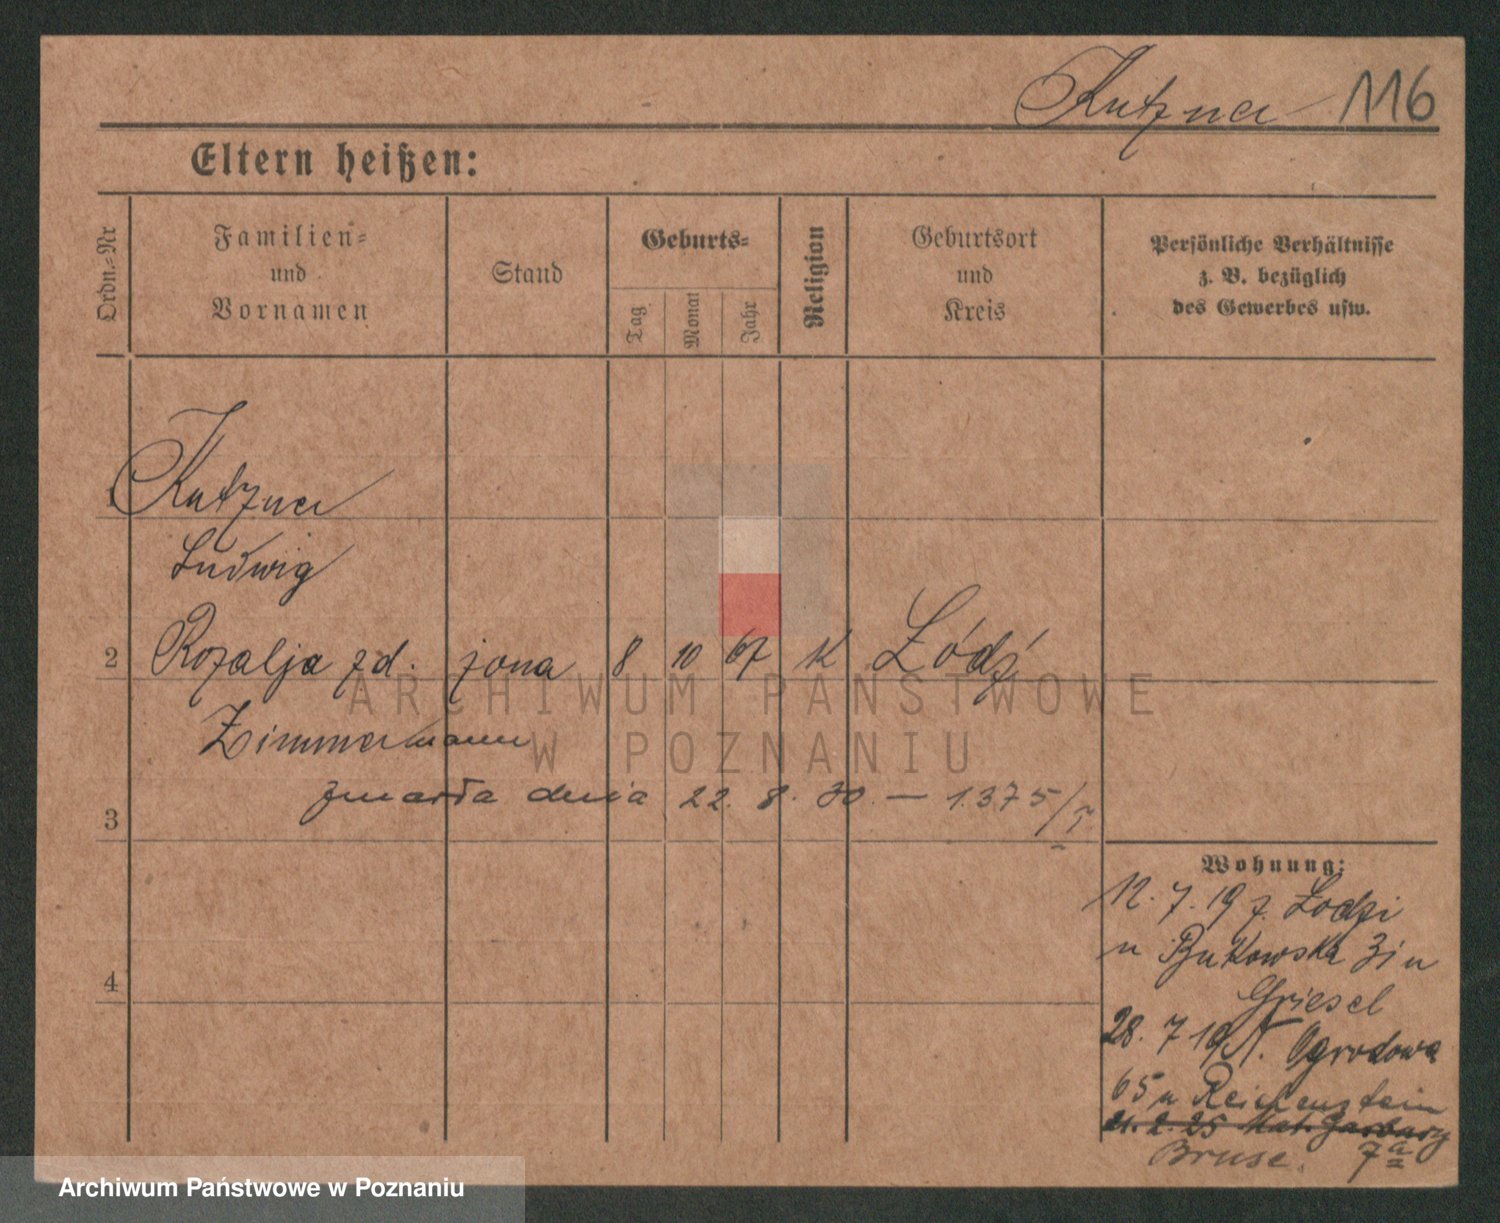 Kutzner 116
Eltern heißen:
Ordn.-Nr
Familien-
und
Vornamen
Stand
Geburts-
Tag
Monat
Jahr
Religion
Geburtsort
und
Kreis
Persönliche Verhältnisse
z. B. bezüglich
des Gewerbes usw.
1 Kutzner
Ludwig
2 Rozalja zd. żona 8 10 67 K Łódź
Zimmermann
3 zmarła dnia 22. 8. 30. — 1375/
4
Wohnung:
12. 7. 19 z Łodzi
u Bukowska 31 u
Griesel
28. 7 19 N. Ogrodowa
65 u Reichenstein
21. 2. 25 Garbary
7a
ARCHIWUM PAŃSTWOWE
W POZNANIU
Archiwum Państwowe w Poznaniu